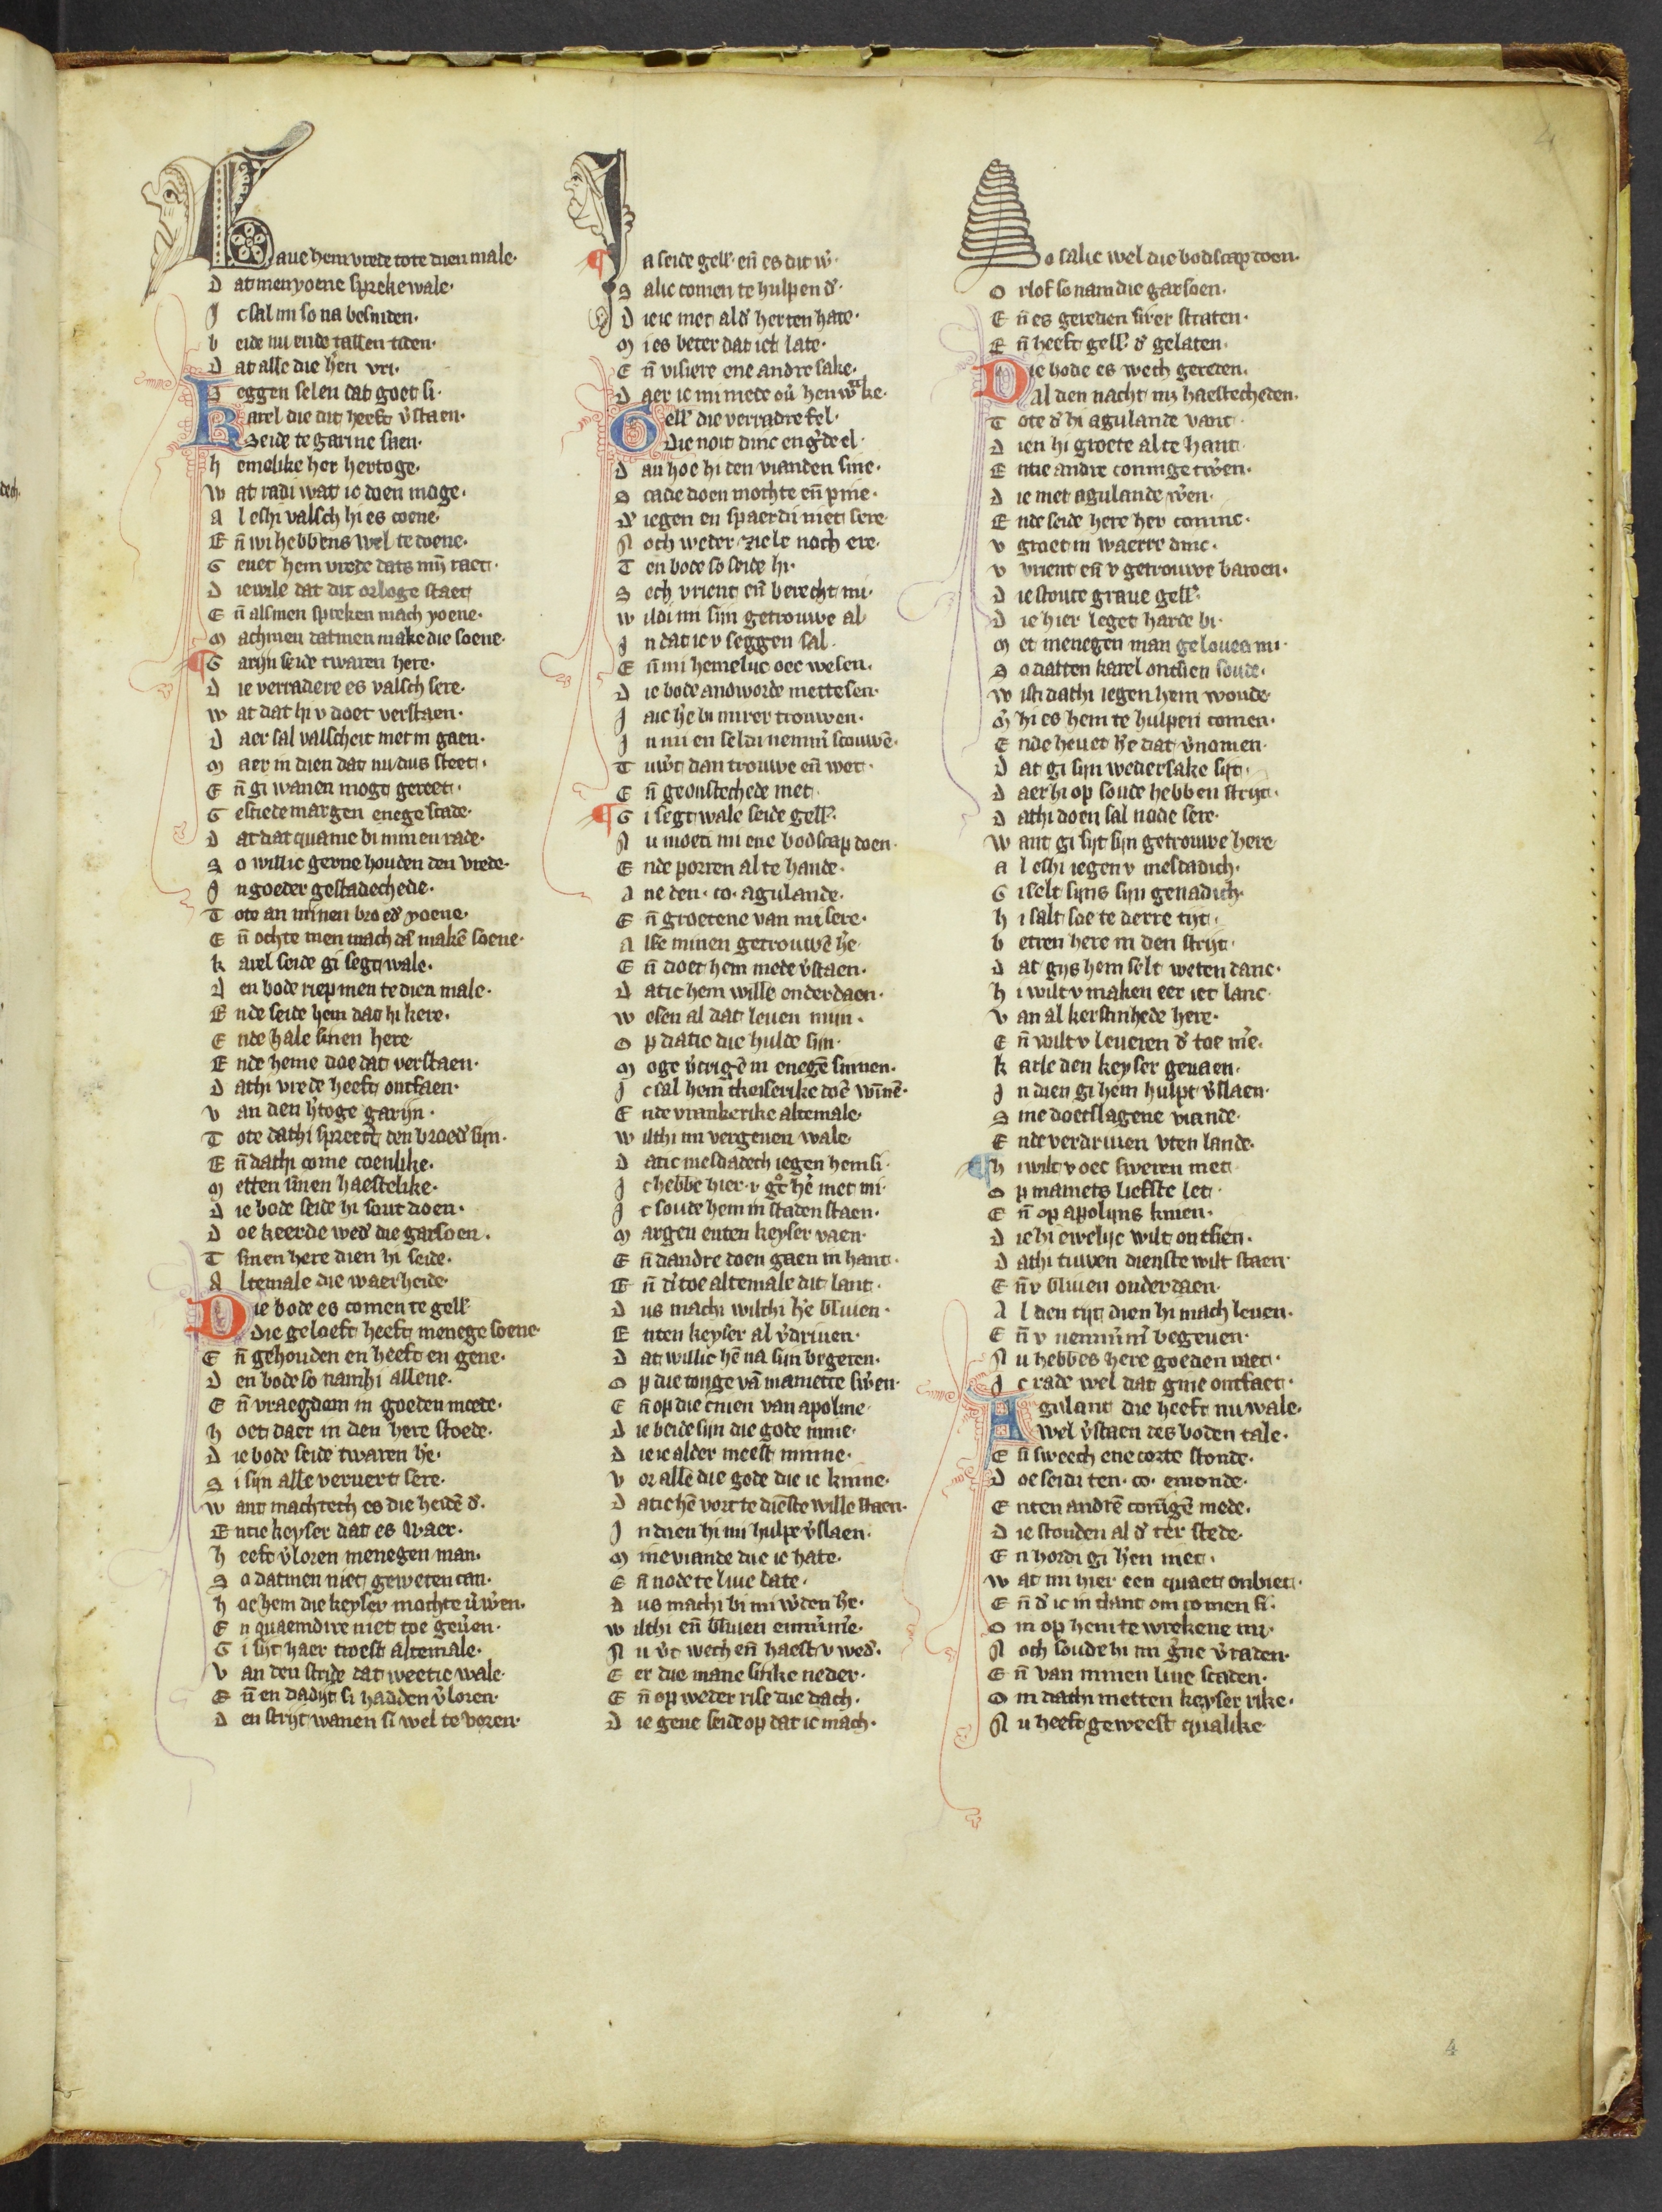 Gaue hem vrede tote dien male·
D at men yoene spreke wale·
J c sal mi so na besniden·
b eide nu ende tallen tiden·
D at alle die h'en vri·
S eggen selen dat goet si·
Karel die dit heeft v'staen·
Seide te garine saen·
h emelike her hertoge·
W at radi wat ic doen moge·
A l eshi valsch hi es coene·
E n̄ wi hebbens wel te doene·
G euet hem vrede dats mijn raet·
D iewile dat dit orloge staet
E n̄ alsmen spreken mach yoene·
M achmen datmen make die soene·
¶ G arijn seide twaren here·
D ie verradere es valsch sere·
W at dat hi v doet verstaen·
D aer sal valscheit met in gaen·
M aer in dien dat nu dus steet·
E n̄ gi wanen mogt gereet·
G estiede margen enege scade·
D at dat quame bi minen rade·
S o willic gerne houden den vrede·
J n goeder gestadechede·
T ote an minen broed' yoene·
E n̄ ochte men mach d'r makē soene·
K arel seide gi segt wale·
D en bode riep men te dien male·
E nde seide hem dat hi kere·
E nde hale sinen here
E nde heme doe dat verstaen·
D athi vrede heeft ontfaen·
V an den h'toge garijn·
T ote dathi spreect den broed' sijn·
E n̄ dathi come coenlike·
M etten sinen haestelike·
D ie bode seide hi sout doen·
D oe keerde wed' die garsoen·
T sinen here dien hi seide·
A ltemale die waerheide·
Die bode es comen te gell'
Die geloeft heeft menege soene·
E n̄ gehouden en heeft en gene·
D en bode so namhi allene·
E n̄ vraegdem in goeden moede·
h oet daer in den here stoede·
D ie bode seide twaren h'e·
S i sijn alle veruert sere·
W ant machtech es die heidē d'·
E ntie keyser dat es waer·
h eeft v'loren menegen man·
S o datmen niet geweten can·
h oe hem die keyser mochte v'w'en·
E n quaemdire niet toe geu'en·
G i sijt haer troest altemale·
V an den stride dat weetic wale·
E n̄ en dadijt si hadden v'loren·
D en strijt wanen si wel te voren·
¶ Ja seide gell' en̄ es dit w'·
S alic comen te hulpen d'·
D ieic met ald' herten hate·
M i es beter dat ict late·
E n̄ visiere ene andre sake·
D aer ic mi mede ou' hen wrake·
Gell' die verradre fel·
Die noit dinc en g'de el·
D an hoe hi den vianden sine·
S cade doen mochte en̄ pine·
D' iegen en spaerdi niet sere
N och weder ziele noch ere·
T en bode so seide hi·
S ech vrient en̄ berecht mi·
W ildi mi sijn getrouwe al
J n dat ic v seggen sal·
E n̄ mi hemelijc oec wesen·
D ie bode andworde mettesen·
J aic h'e bi mirer trouwen·
J n mi en seldi nemm' scouwē·
T uw't dan trouwe en̄ wet·
E n̄ geonstechede met·
¶ G i segt wale seide gell'·
N u moeti mi ene bodscap doen·
E nde porren al te hande·
A ne den· co· agulande·
E n̄ groetene van mi sere·
A lse minen getrouwē h'e·
E n̄ doet hem mede v'staen·
D atic hem wille onderdaen·
W esen al dat leuen mijn·
O p datic die hulde sijn·
M oge v'crigē in enegē sinnen·
J c sal hem tkeiserike doē winē·
E nde vrankerike altemale·
W ilthi mi vergeuen wale·
D atic mesdadech iegen hem si·
J c hebbe hier· v· gr' h'e met mi·
J c soude hem in staden staen·
M argen enten keyser vaen·
E n̄ dandre doen gaen in hant·
E n̄ d'toe altemale dit lant·
D us machi wilthi h'e bliuen·
E nten keyser al v'driuen·
D at willic hē na sijn begeren·
O p die tonge vā mamette sw'en·
E n̄ op die cnien van apoline·
D ie beide sijn die gode mine·
D ieic alder meest minne·
V or alle die gode die ic kinne·
D atic hē vort te diēste wille staen·
J n dien hi mi hulpe v'slaen·
M ine viande die ic hate·
E n̄ node te liue late·
D us machi bi mi w'den h'e·
W ilthi en̄ bliuen emm'me·
N u v't wech en̄ haest v wed'·
E er die mane sinke neder·
E n̄ op weder rise die dach·
D ie gene seide op dat ic mach·
So salic wel die bodscap doen·
O rlof so nam die garsoen·
E n̄ es gereden sirer straten·
E n̄ heeft gell' d' gelaten·
Die bode es wech gereden·
Al dien nacht mz haestecheden·
T ote d' hi agulande vant·
D ien hi groete al te hant·
E ntie andre coninge tw'en·
D ie met agulande w'en·
E nde seide here her coninc·
V groet in waerre dinc·
V vrient en̄ v getrouwe baroen·
D ie stoute graue gell'·
D ie hier leget harde bi·
M et menegen man gelouet mi·
S o datten karel ontsien soude·
W isti dathi iegen hem woude·
M' hi es hem te hulpen comen·
E nde heuet h'e dat v'nomen·
D at gi sijn wedersake sijt·
D aer hi op soude hebben strijt·
D athi doen sal node sere·
W ant gi sijt sijn getrouwe here
A l eshi iegen v mesdadich·
G i selt sijns sijn genadich·
h i salt soe te derre tijt·
b etren here in den strijt·
D at gijs hem selt weten danc·
h i wilt v maken eer iet lanc·
V an al kerstinhede here·
E n̄ wilt v leueren d' toe me'·
K arle den keyser geuaen·
J n dien gi hem hulpt v'slaen·
S ine doetslagene viande·
E nde verdriuen vten lande·
¶ h i wilt v oec sweren met·
O p mamets liefste let·
E n̄ op apolijns knien·
D ie hi ewelijc wilt ontsien·
D athi tuwen dienste wilt staen·
E n̄ v bliuen onderdaen·
A l den tijt dien hi mach leuen·
E n̄ v nemm'm' begeuen·
N u hebbes here goeden raet·
J c rade wel dat gine ontfaet·
Agulant die heeft nu wale·
Wel v'staen des boden tale·
E n̄ sweech ene corte stonde·
D oe seidi ten· co· emonde·
E nten andrē conīgē mede·
D ie stonden al d' ter stede·
E n hordi gi h'en niet·
W at mi hier een quaet onbiet·
E n̄ d' ic in tsant om comen si·
O m op hem te wrekene mi·
N och soude hi mi g'ne v'raden·
E n̄ van minen liue scaden·
O m dathi metten keyser rike·
N u heeft geweest qualike
4
4